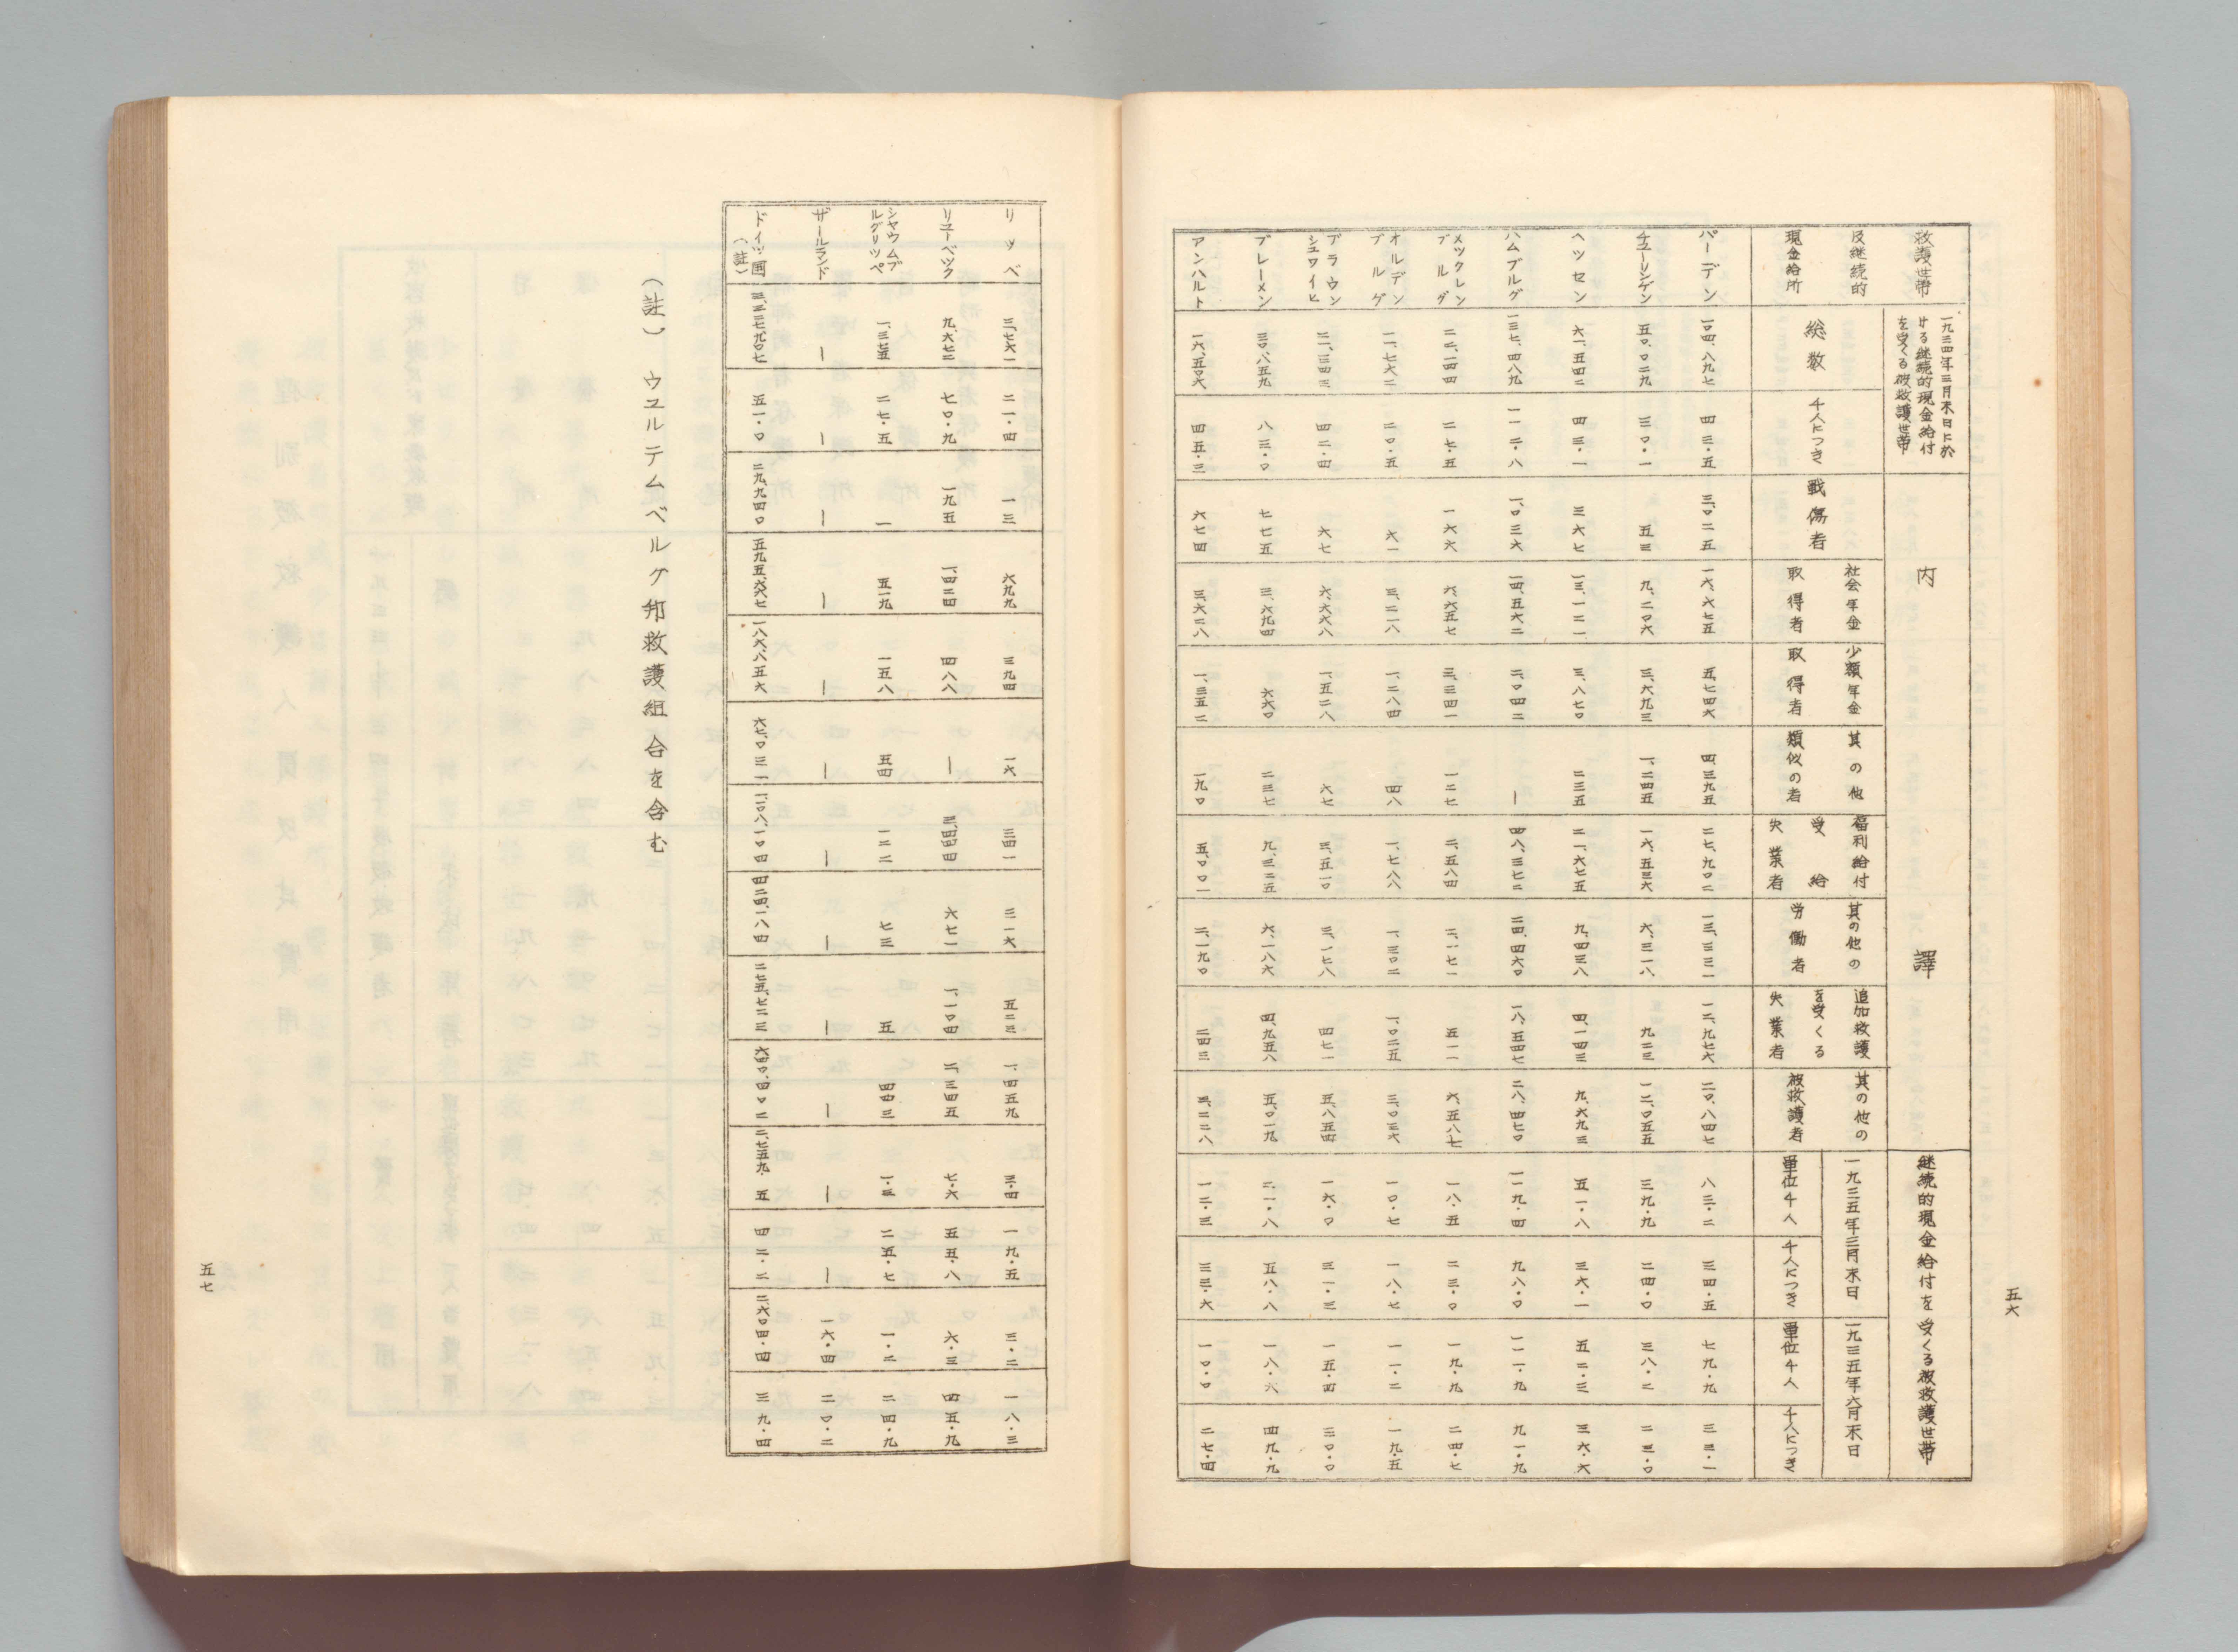 五六
救護世帯
及継続的
現金給所
一九三四年三月末日に於
ける継続的現金給付
を受くる被救護世帯
総数
千人につき
内
譯
戦傷者
社会年金
取得者
少額年金
取得者
其の他
類似の者
福利給付
受給
失業者
其の他の
労働者
追加救護
を受くる
失業者
其の他の
被救護者
継続的現金給付を受くる被救護世帯
一九三五年三月末日
単位千人
千人につき
一九三五年六月末日
単位千人
千人につき
バーデン 一〇四、八九七 四三・五 三、〇二五 一六、六七五 五、七四六 四、三九五 二七、九〇二 一三、三三一 一二、九七六 二〇、八四七 八三・二 三四・五 七九・九 三三・一
チューリンゲン 五〇、〇二九 三〇・一 五三 九、二〇六 三、六九三 一、二四五 一六、五三六 六、三一八 九二三 一二、〇五五 三九・九 二四・〇 三八・二 二三・〇
ヘッセン 六一、五四二 四三・一 三六七 一三、一二一 三、八七〇 二三五 二一、六七五 九、四三八 四、一四三 九、六九三 五一・八 三六・一 五二・三 三六・六
ハムブルグ 一三七、四八九 一一二・八 一、〇三六 一四、五六二 二、〇四二 ― 四八、三七二 二四、四六〇 一八、五四七 二八、四七〇 一一九・四 九八・〇 一一一・九 九一・九
メックレンブルグ 二二、一四四 二七・五 一六六 六、六五七 三、三四一 一二七 二、五八四 二、一七一 五一一 六、五八七 一八・五 二三・〇 一九・九 二四・七
オルデンブルグ 一一、七六二 二〇・五 六一 三、二一八 一、二八四 四八 一、七八八 一、三〇二 一、〇二五 三、〇三六 一〇・七 一八・七 一一・二 一九・五
ブラウンシュワイヒ 二一、三四三 四二・四 六七 六、六六八 一、五二八 六七 三、五一〇 三、一七八 四七一 五、八五四 一六・〇 三一・三 一五・四 三〇・〇
ブレーメン 三〇、八五九 八三・〇 七七五 三、六九四 六六〇 二三七 九、三二五 六、一八六 四、九五八 五、〇一九 二一・八 五八・八 一八・六 四九・九
アンハルト 一六、五〇六 四五・三 六七四 三、六二八 一、三五二 一九〇 五、〇〇一 二、一九〇 二四三 三、二二八 一二・三 三三・六 一〇・〇 二七・四
リッペ 三、七六一 二一・四 一三 六九九 三九四 一六 三四一 三一六 五二三 一、四五九 三・四 一九・五 三・二 一八・三
リユーベツク 九、六七二 七〇・九 一九五 一、四二四 四八八 ― 三、四四四 六七一 一、一〇四 二、三四五 七・六 五五・八 六・三 四五・九
シヤウムブルグリツペ 一、三七五 二七・五 一 五一九 一五八 五四 一二二 七三 五 四四三 一・三 二五・七 一・二 二四・九
ザールランド ― ― ― ― ― ― ― ― ― ― ― ― 一六・四 二〇・二
ドイツ国(註) 三、三二七、九〇七 五一・〇 二九、九四〇 五九五、六六七 一八六、八五六 六七、〇三一 一、一〇八、一〇四 四二四、一八四 二七五、七二三 六四〇、四〇二 二、七五九・五 四二・二 二、六〇四・四 三九・四
(註) ウユルテムベルグ邦救護組合を含む
五七